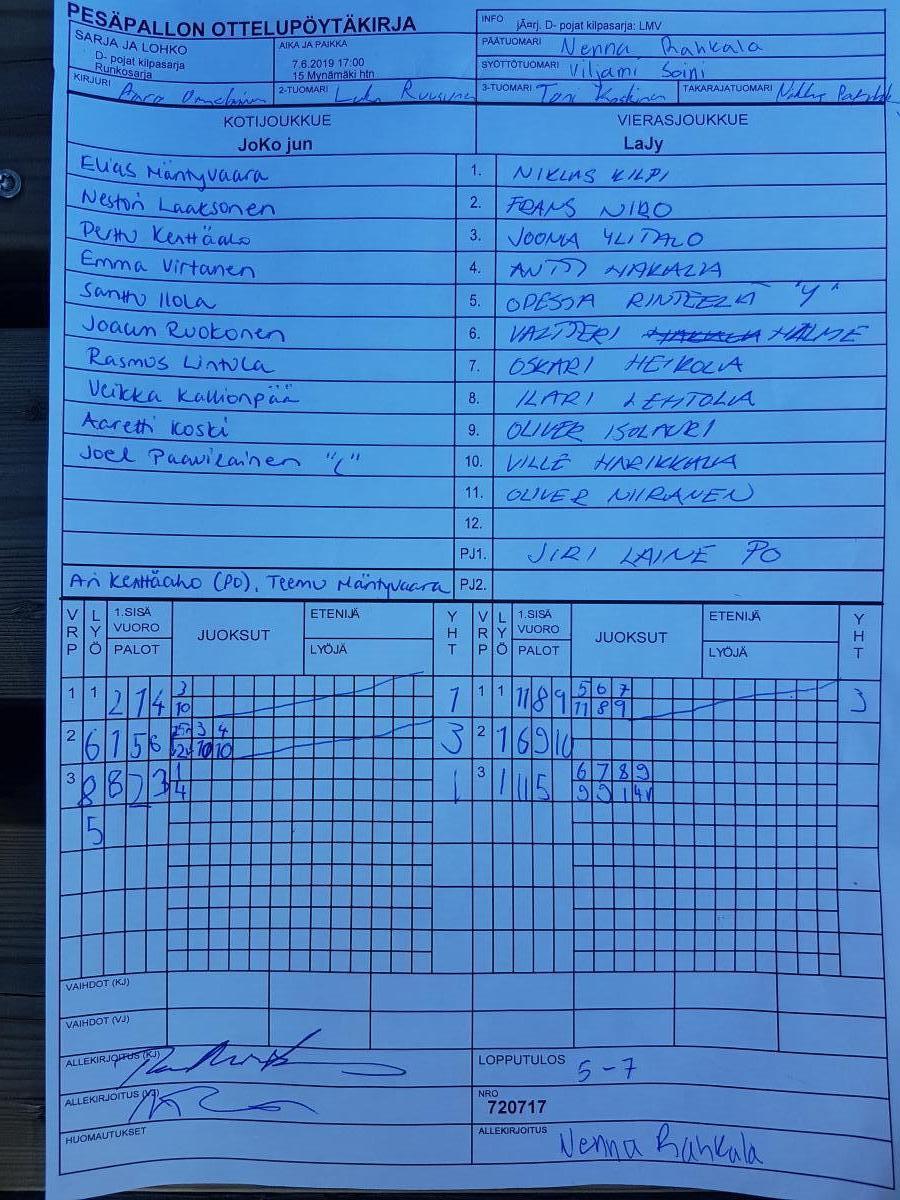 PESÄPALLON OTTELUPÖYTÄKIRJA
INFO jÄ¤rj. D- pojat kilpasarja: LMV
SARJA JA LOHKO
D- pojat kilpasarja
Runkosarja
AIKA JA PAIKKA
7.6.2019 17:00
15 Mynämäki htn
PÄÄTUOMARI Nenna Rahkala
SYÖTTÖTUOMARI Viljami Soini
KIRJURI
2-TUOMARI
3-TUOMARI Toni Koskinen
TAKARAJATUOMARI
KOTIJOUKKUE
JoKo jun
VIERASJOUKKUE
LaJy
Elias Mäntyvaara 1. NIKLAS KILPI
Nestori Laaksonen 2. FRANS NIRO
Perttu Kenttäaho 3. JOONA YLITALO
Emma Virtanen 4. ANTTI HAKALA
Santtu Ilola 5. ODESSA RINTEELÄ "Y"
Ruokonen 6. VALTTERI HALME
Rasmus Lintula 7. OSKARI HEIKOLA
Veikka Kallionpää 8. ILARI LEHTOLA
Aaretti Koski 9. OLIVER ISOLAURI
Joel Paavilainen "L" 10. VILLE HARIKKALA
11. OLIVER NIIRANEN
12.
PJ1. JIRI LAINE PO
Ari Kenttäaho (PO), Teemu Mäntyvaara PJ2.
VRP LYÖ 1.SISÄ VUORO PALOT JUOKSUT ETENIJÄ LYÖJÄ YHT VRP LYÖ 1.SISÄ VUORO PALOT JUOKSUT ETENIJÄ LYÖJÄ YHT
1 1 2 7 4 3 1 1 1 11 8 9 5 6 7 3
10 11 8 9
2 6 1 5 6 3 4 3 2 1 6 9 10
10 10
3 8 8 2 3 1 1 3 1 11 5 6 7 8 9
4 9 9 1
5
VAIHDOT (KJ)
VAIHDOT (VJ)
ALLEKIRJOITUS (KJ)
LOPPUTULOS 5-7
ALLEKIRJOITUS (VJ)
NRO
720717
HUOMAUTUKSET
ALLEKIRJOITUS Nenna Rahkala